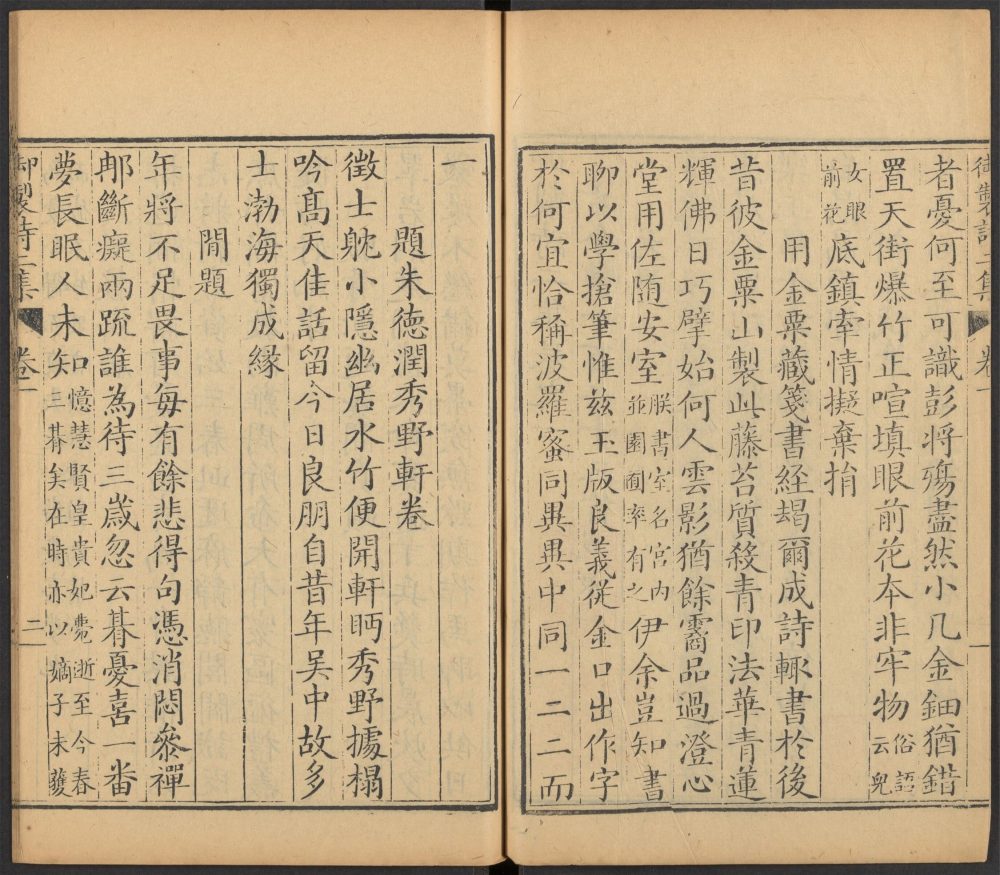 御製詩二集 卷一 一
者憂何至可識彭將殤盡然小几金鈿猶錯
置天街爆竹正喧填眼前花本非牢物俗語云兒
女眼前花底鎮牽情擬棄捐
用金粟藏箋書經爾成詩輒書於後
昔彼金粟山製此藤苔質殺青印法華青蓮
輝佛日巧擘始何人雲影猶餘霱品過澄心
堂用佐随安室朕書室名宮内並園囿率有之伊余豈知書
聊以學搶筆惟兹玉版良義從金口出作字
於何宜恰稱波羅蜜同異異中同一二二而
一
題朱德潤秀野軒卷
徵士躭小隱幽居水竹便開軒眄秀野據榻
吟髙天佳話留今日良朋自昔年吴中故多
士渤海獨成緣
閒題
年將不足畏事每有餘悲得句憑消悶參禪
那斷癡兩疏誰為待三歳忽云朞憂喜一番
夢長眠人未知憶慧賢皇貴妃薨逝至今春三朞矣在時亦以嫡子未獲
御製詩二集 卷 二